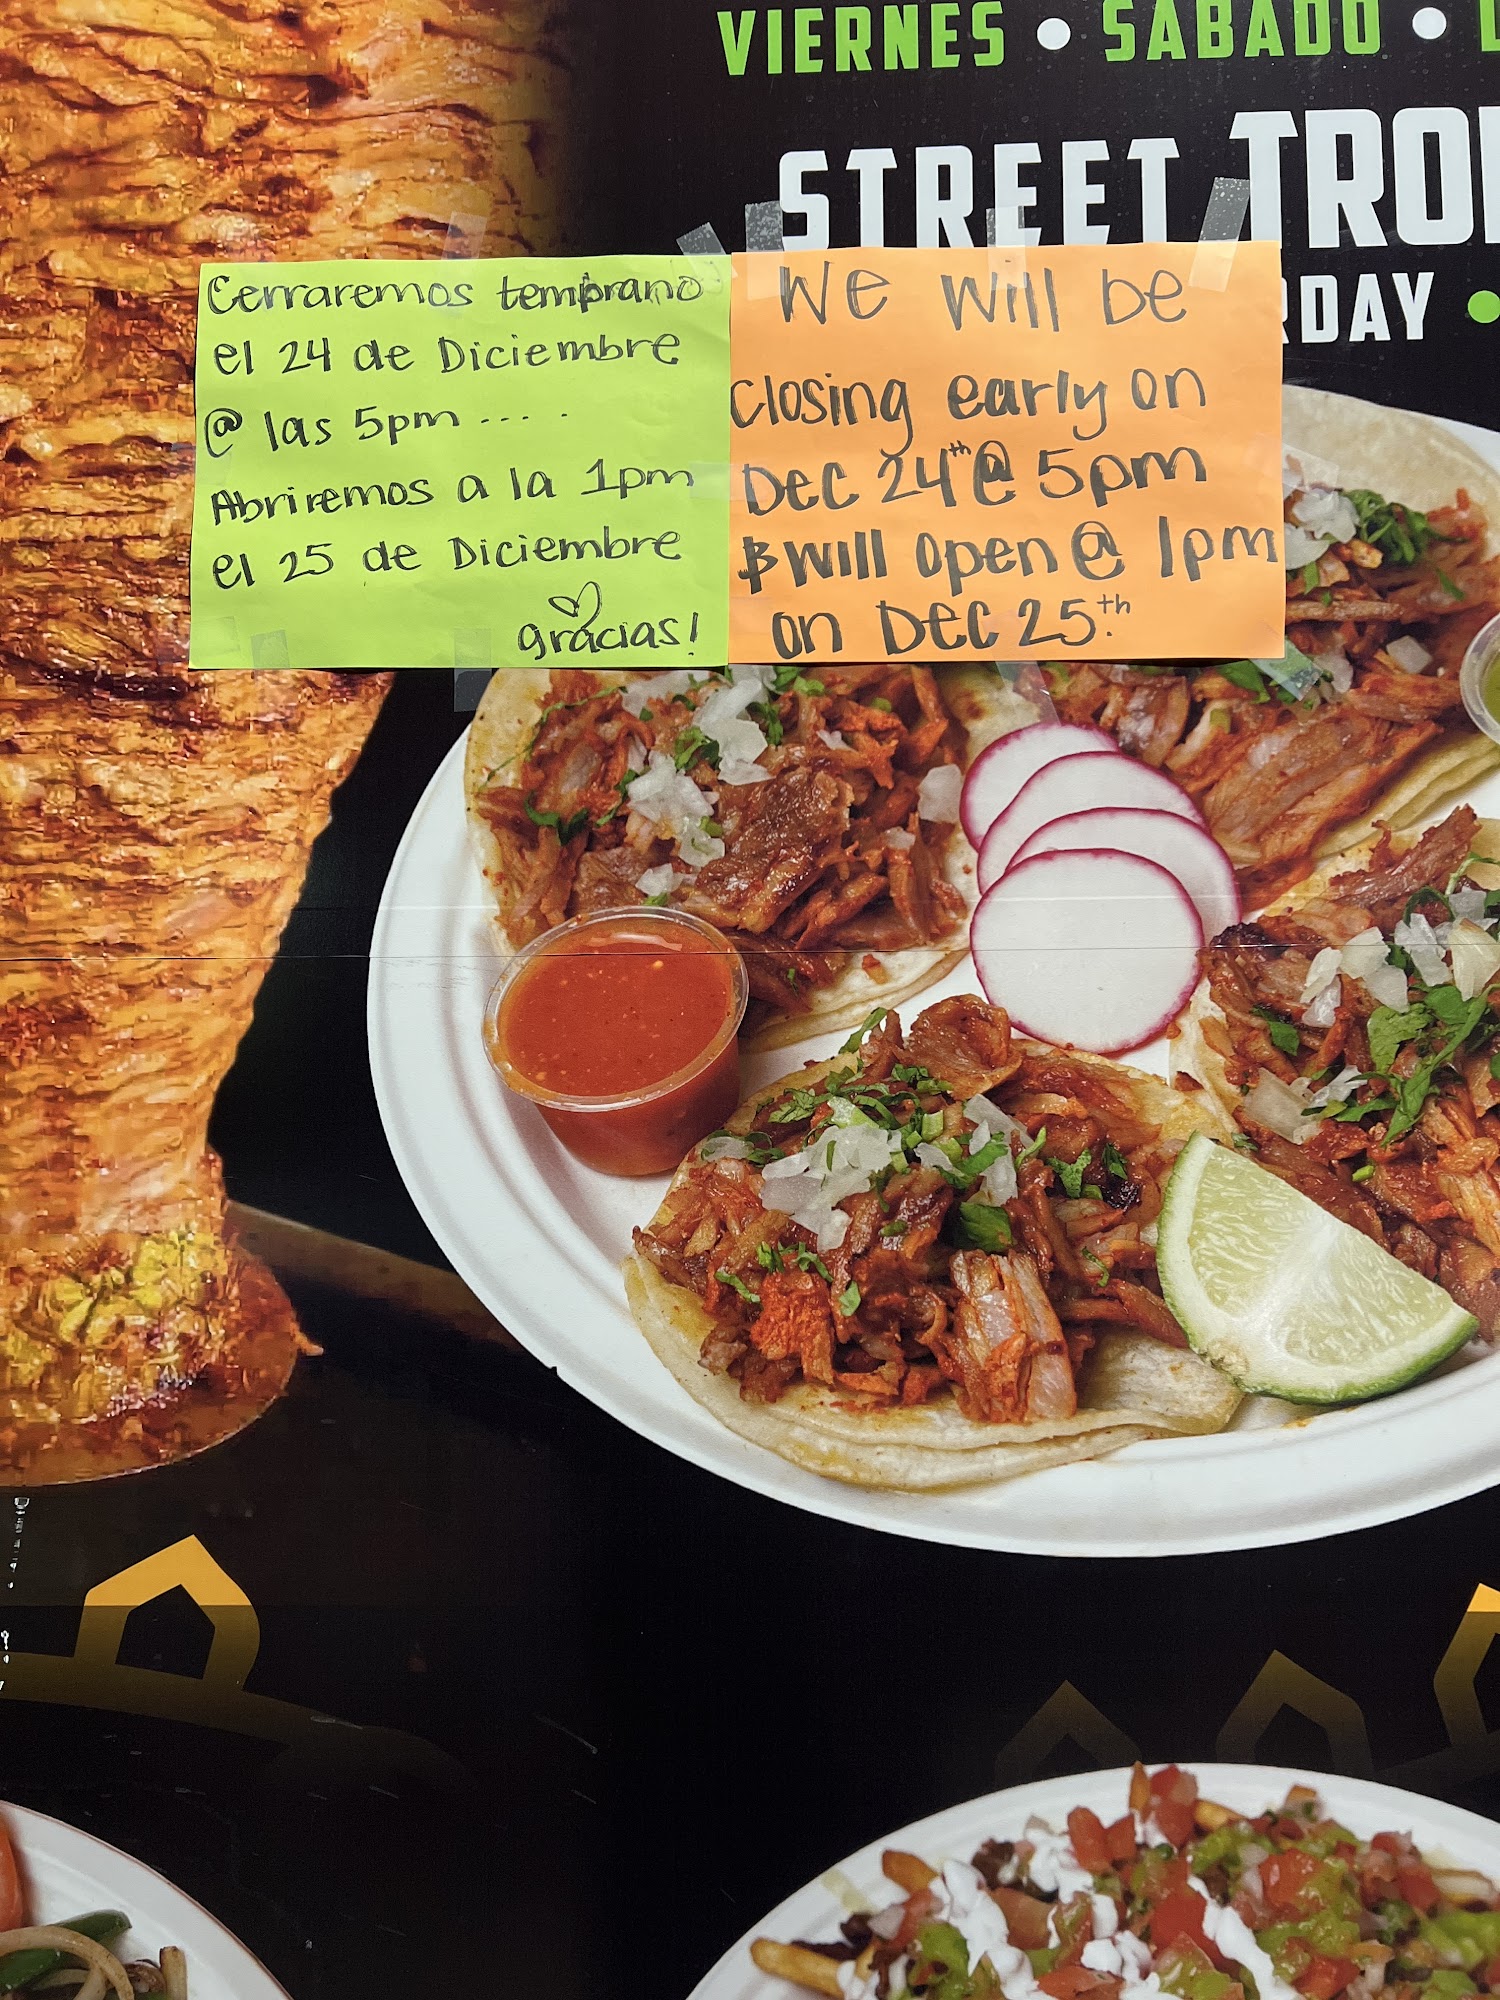 VIERNES • SABADO •
STREET
RDAY •
Cerraremos temprano
el 24 de Diciembre
@ las 5pm .... .
Abriremos a la 1pm
el 25 de Diciembre
gracias!
We will be
closing early on
Dec 24th @ 5pm
& will open @ 1pm
on Dec 25th.